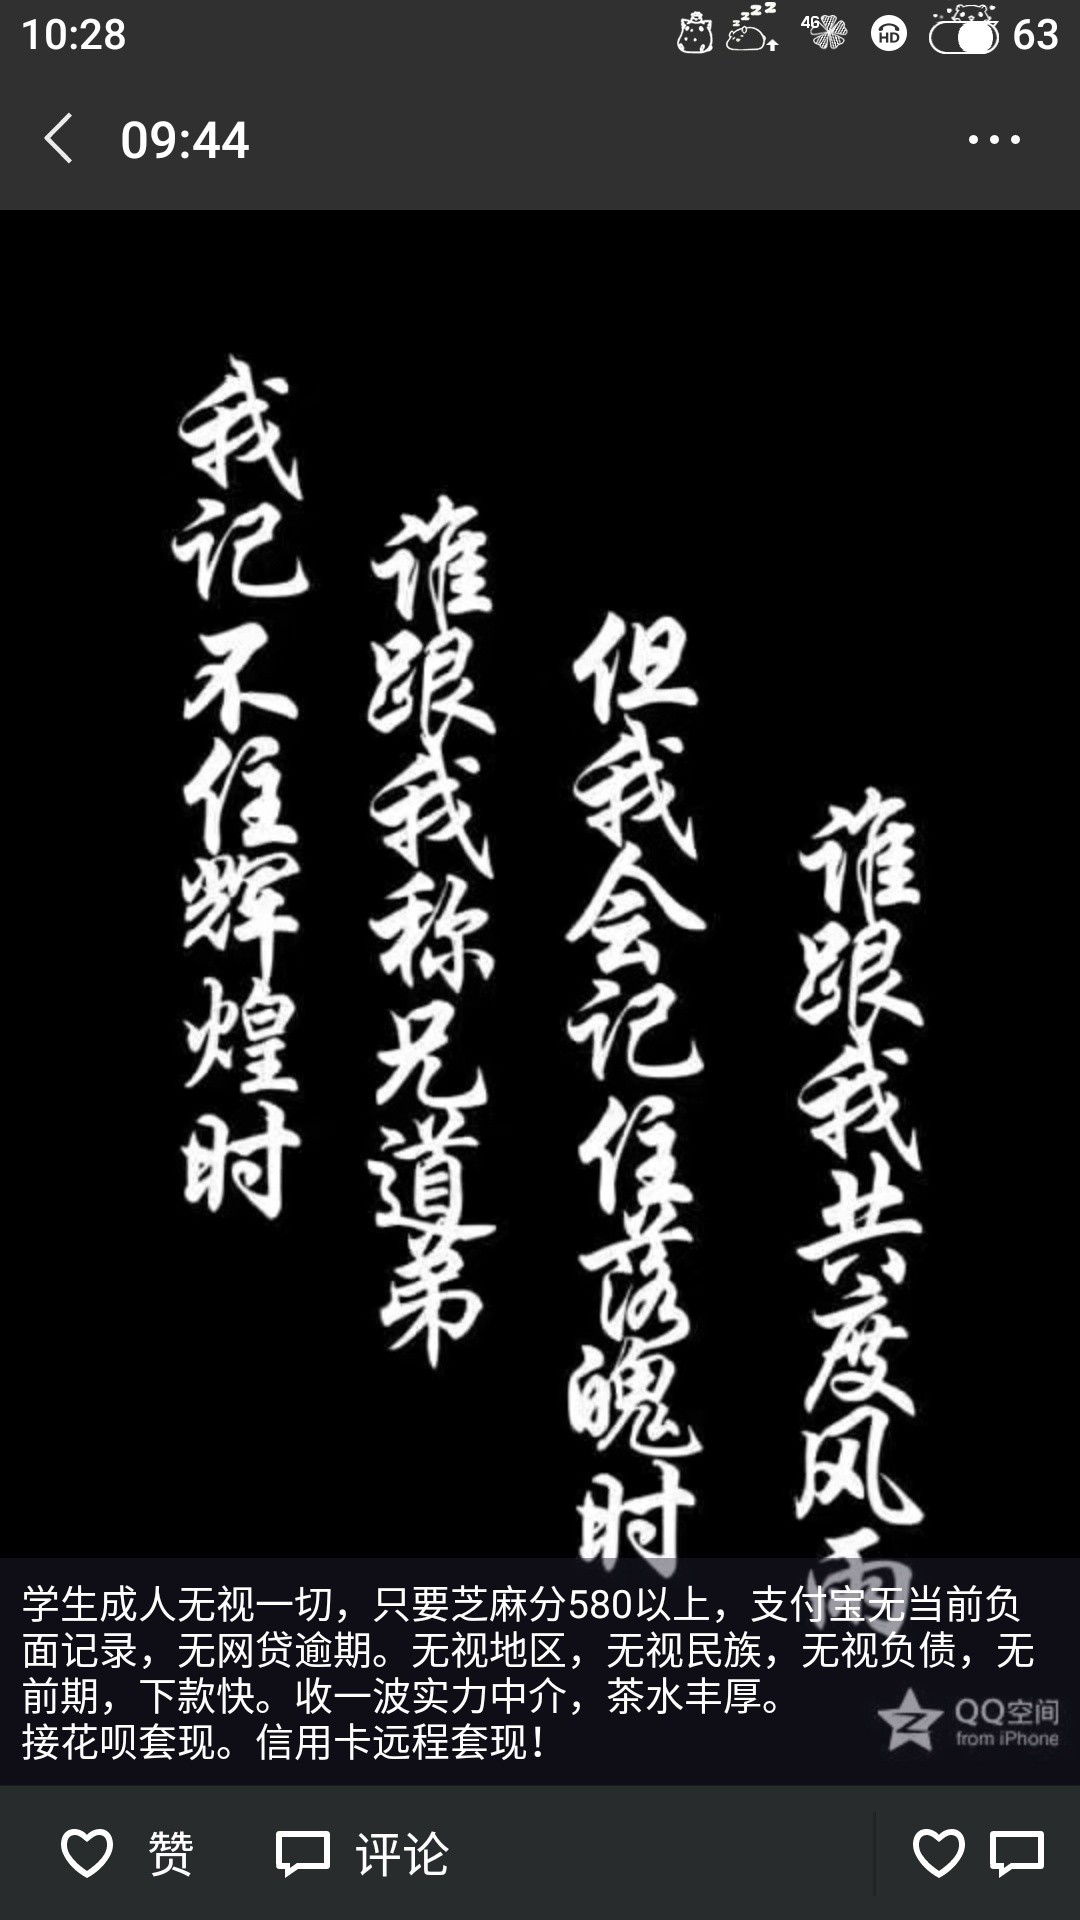 10:28
4G
HD
63
09:44
我记不住辉煌时
谁跟我称兄道弟
但我会记住落魄时
谁跟我共度风雨
学生成人无视一切，只要芝麻分580以上，支付宝无当前负
面记录，无网贷逾期。无视地区，无视民族，无视负债，无
前期，下款快。收一波实力中介，茶水丰厚。
接花呗套现。信用卡远程套现！
QQ空间
from iPhone
赞
评论